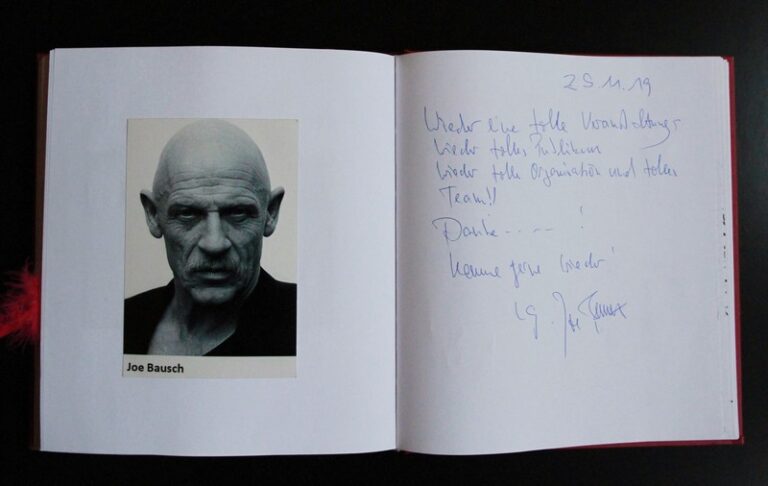 Joe Bausch
29.11.19
Wieder eine tolle Veranstaltung
Wieder tolles Publikum
Wieder tolle Organisation und tolles
Team!!
Danke - - - - !
Komme gerne wieder!
LG. Joe Bausch